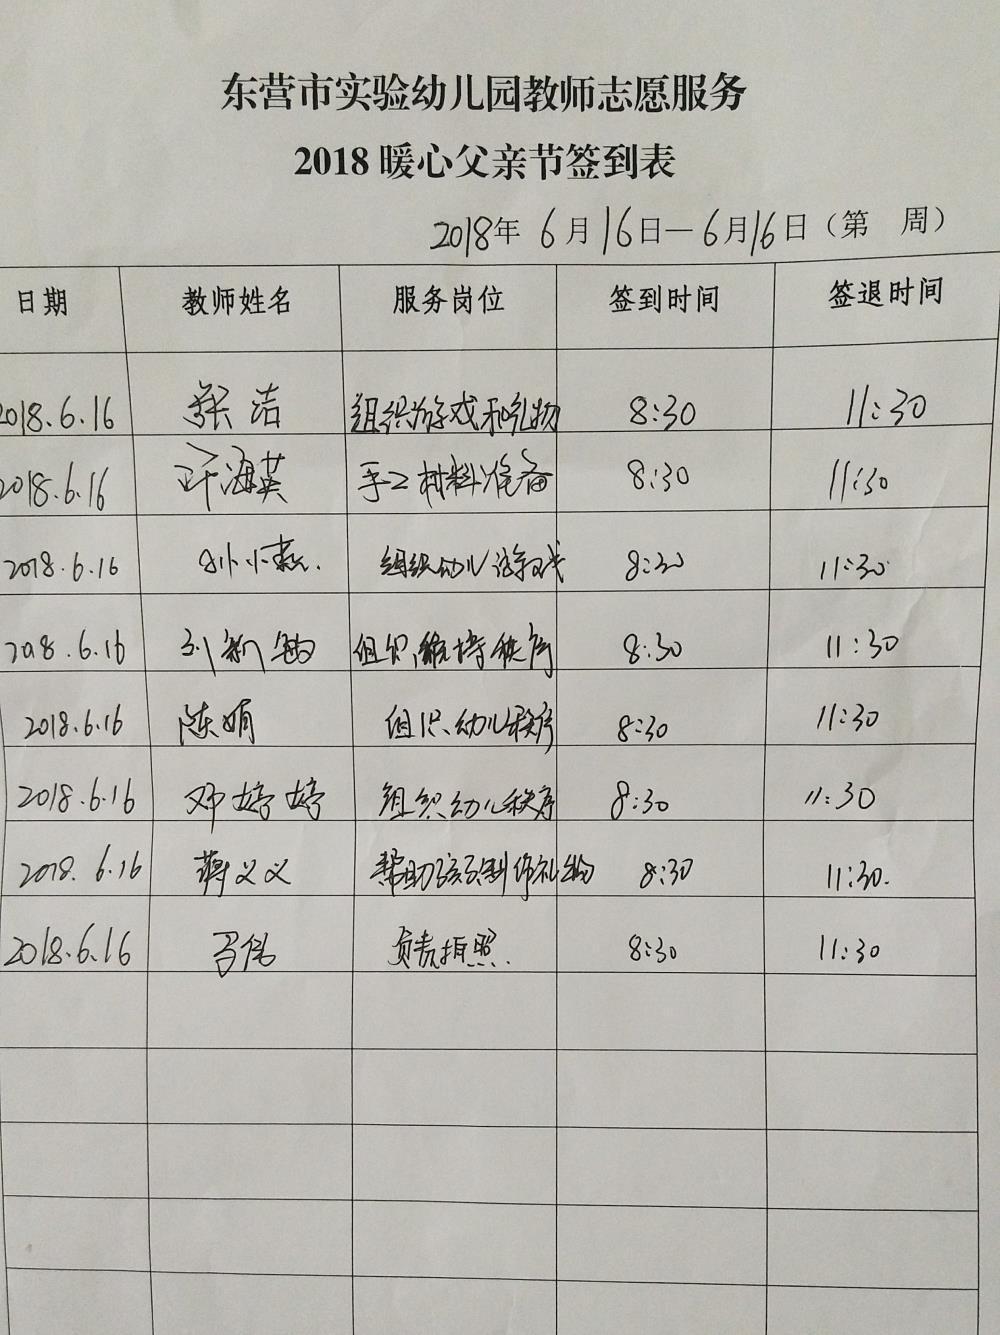 东营市实验幼儿园教师志愿服务
2018 暖心父亲节签到表
2018年 6月16日—6月16日（第 周）
日期 教师姓名 服务岗位 签到时间 签退时间
2018.6.16 张洁 组织游戏和礼物 8:30 11:30
2018.6.16 许海英 手工材料准备 8:30 11:30
2018.6.16 小燕. 组织幼儿游戏 8:30 11:30
2018.6.16 刘新 组织,维持秩序 8:30 11:30
2018.6.16 陈娟 组织幼儿秩序 8:30 11:30
2018.6.16 邓婷婷 组织幼儿秩序 8:30 11:30
2018.6.16 蒋义义 帮助孩子制作礼物 8:30 11:30.
2018.6.16 伟 负责拍照. 8:30 11:30